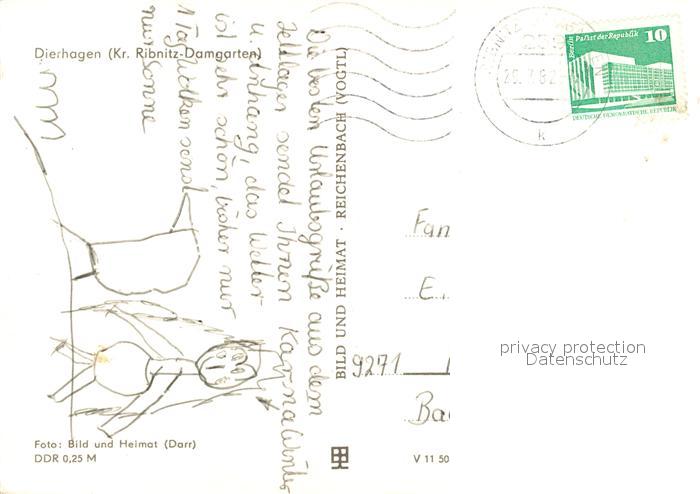 Dierhagen (Kr. Ribnitz-Damgarten)
Die besten Urlaubsgrüße aus dem
Zeltlager sendet Ihnen Karna Winter
u. Anhang, das Wetter
ist sehr schön, bisher nur
1 Tag Wolken sonst
nur Sonne
Foto: Bild und Heimat (Darr)
DDR 0,25 M
BILD UND HEIMAT · REICHENBACH (VOGTL)
V 11 50
Berlin
Palast der Republik
10
DEUTSCHE DEMOKRATISCHE REPUBLIK
k
Fam
E.
9271
Ba
privacy protection
Datenschutz